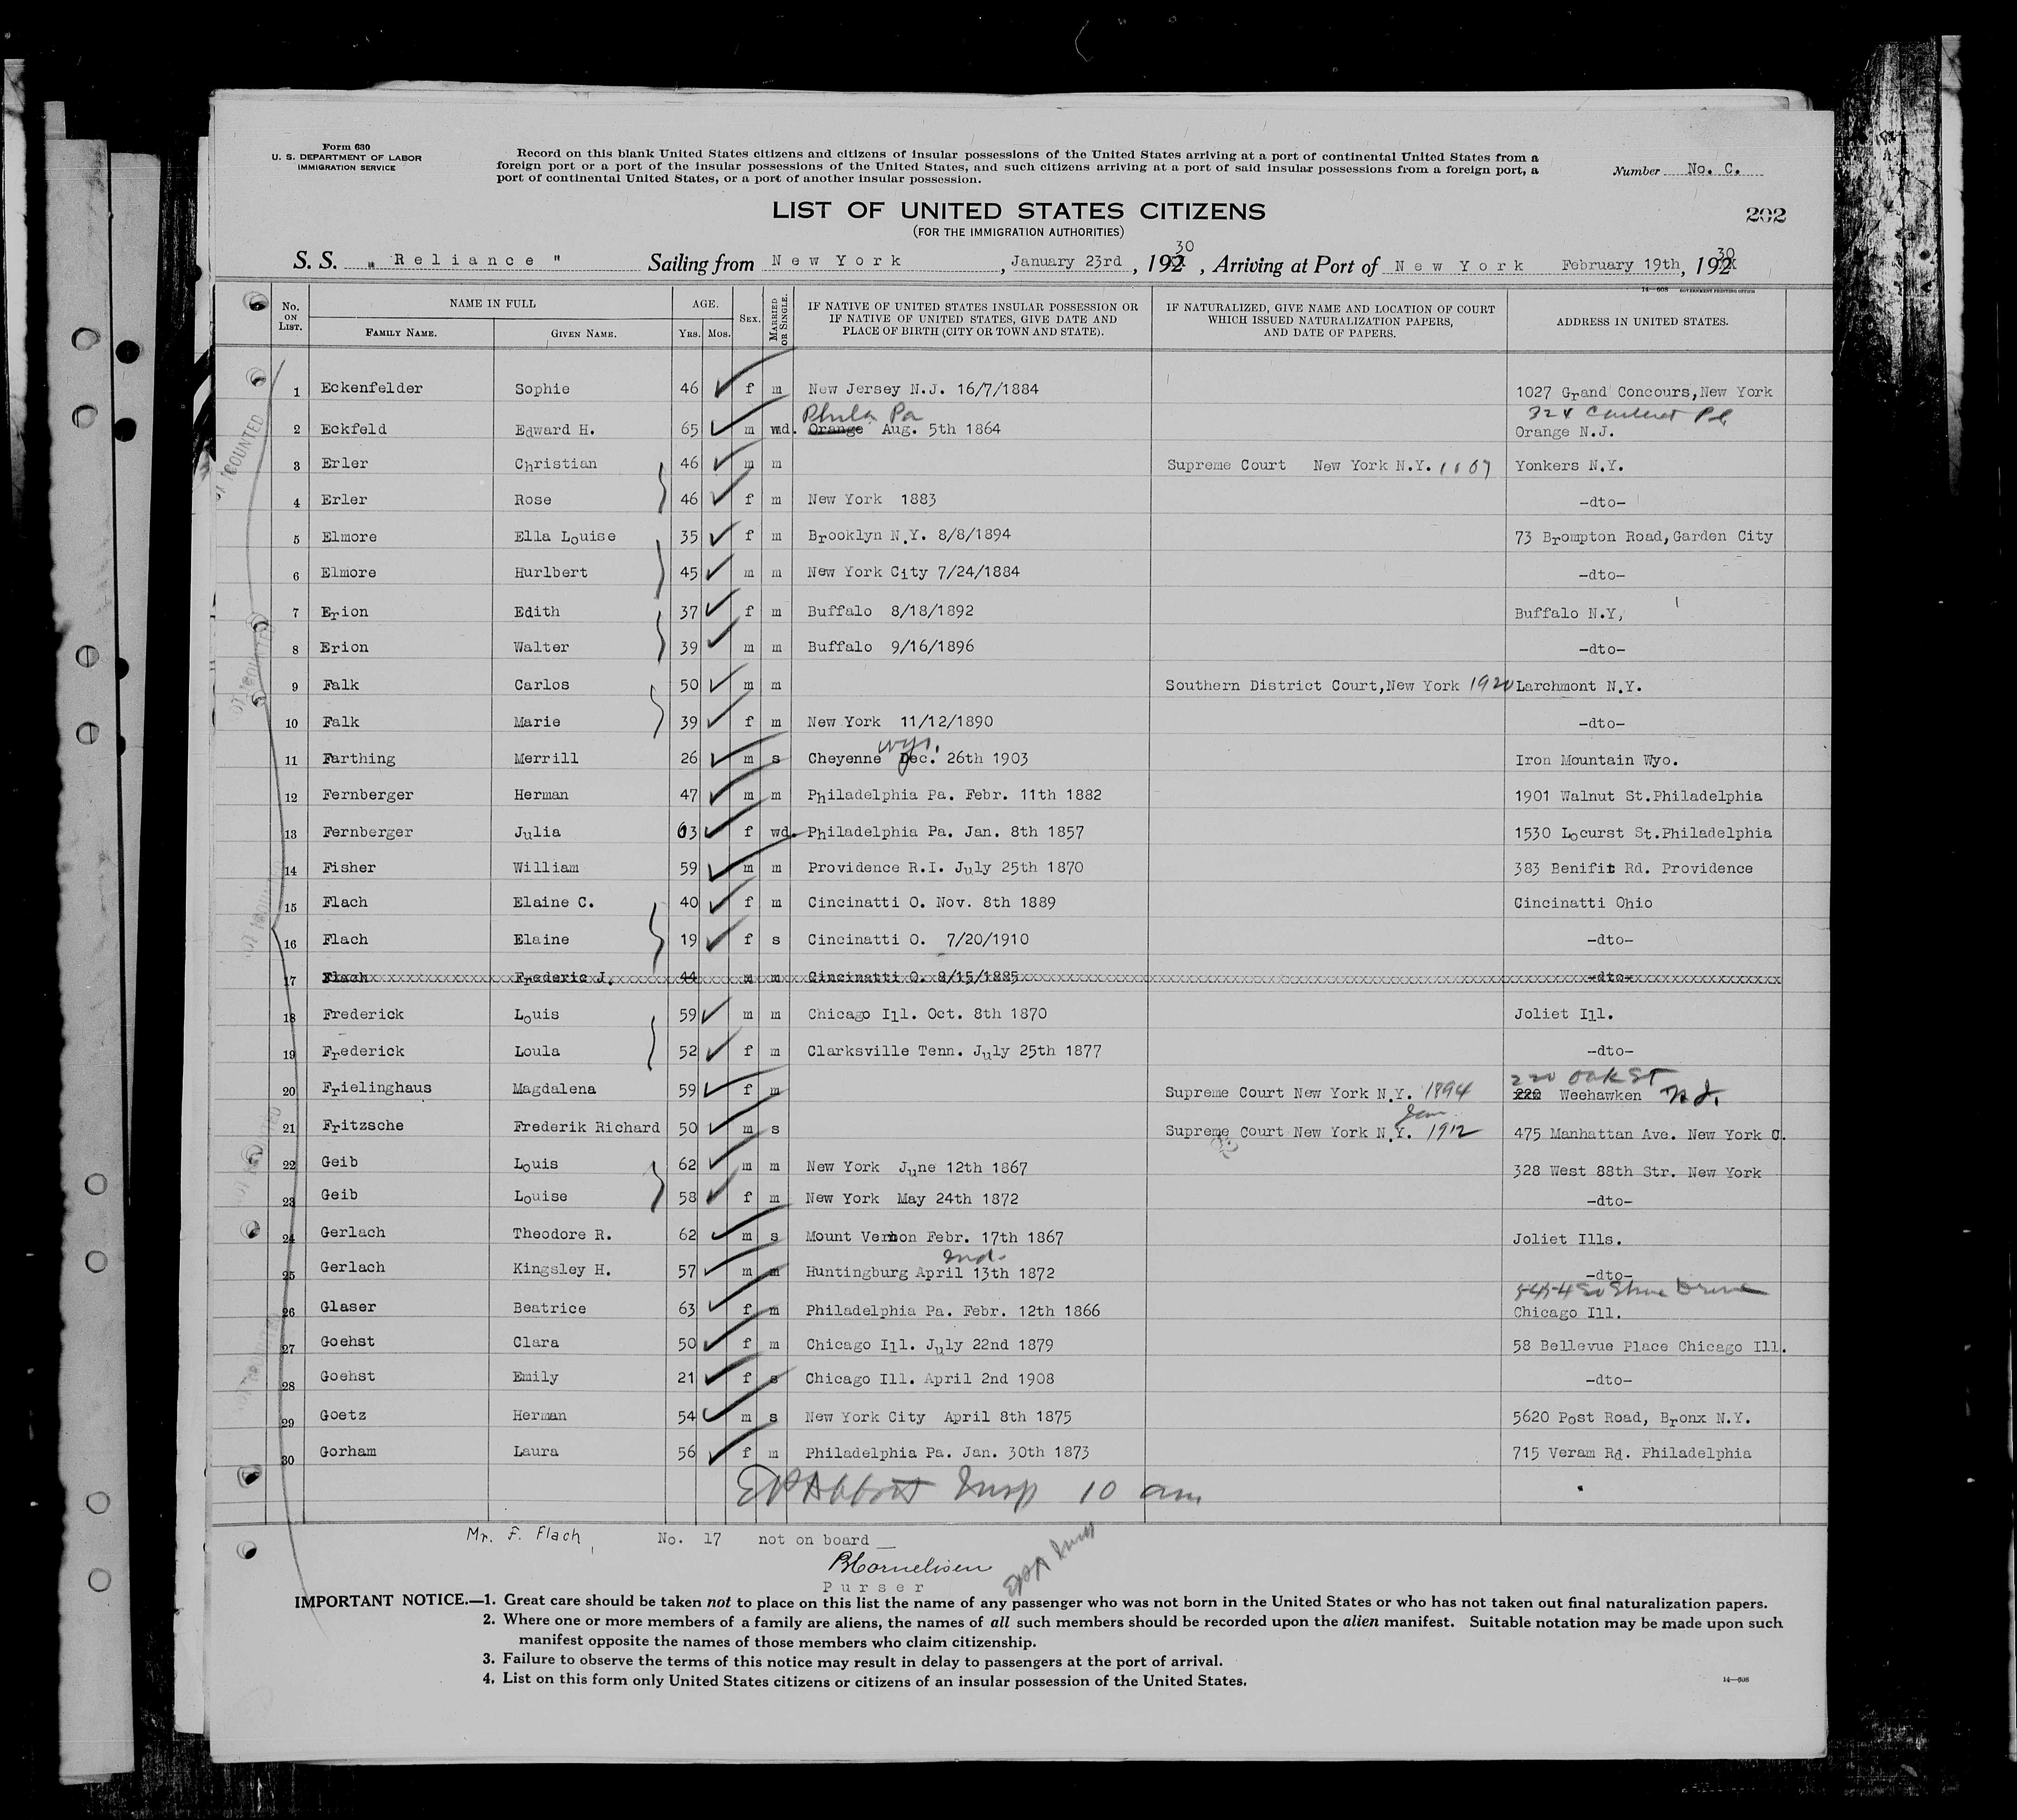 Form 630
U. S. DEPARTMENT OF LABOR
IMMIGRATION SERVICE
Record on this blank United States citizens and citizens of insular possessions of the United States arriving at a port of continental United States from a
foreign port or a port of the insular possessions of the United States, and such citizens arriving at a port of said insular possessions from a foreign port, a
port of continental United States, or a port of another insular possession.
Number No. C.
LIST OF UNITED STATES CITIZENS
(FOR THE IMMIGRATION AUTHORITIES)
202
S. S. " Reliance " Sailing from New York, January 23rd, 192 30, Arriving at Port of New York February 19th, 192 30
14—608 GOVERNMENT PRINTING OFFICE
No. ON LIST. NAME IN FULL FAMILY NAME. GIVEN NAME. AGE. YRS. MOS. SEX. MARRIED OR SINGLE. IF NATIVE OF UNITED STATES INSULAR POSSESSION OR IF NATIVE OF UNITED STATES, GIVE DATE AND PLACE OF BIRTH (CITY OR TOWN AND STATE). IF NATURALIZED, GIVE NAME AND LOCATION OF COURT WHICH ISSUED NATURALIZATION PAPERS, AND DATE OF PAPERS. ADDRESS IN UNITED STATES.
1 Eckenfelder Sophie 46 f m New Jersey N.J. 16/7/1884 1027 Grand Concours,New York
Phila Pa 324 Pl
2 Eckfeld Edward H. 65 m wd. Orange Aug. 5th 1864 Orange N.J.
3 Erler Christian 46 m m Supreme Court New York N.Y. Yonkers N.Y.
4 Erler Rose 46 f m New York 1883 -dto-
5 Elmore Ella Louise 35 f m Brooklyn N.Y. 8/8/1894 73 Brompton Road,Garden City
6 Elmore Hurlbert 45 m m New York City 7/24/1884 -dto-
7 Erion Edith 37 f m Buffalo 8/18/1892 Buffalo N.Y,
8 Erion Walter 39 m m Buffalo 9/16/1896 -dto-
9 Falk Carlos 50 m m Southern District Court,New York 1920 Larchmont N.Y.
10 Falk Marie 39 f m New York 11/12/1890 -dto-
Wyo.
11 Farthing Merrill 26 m s Cheyenne Dec. 26th 1903 Iron Mountain Wyo.
12 Fernberger Herman 47 m m Philadelphia Pa. Febr. 11th 1882 1901 Walnut St.Philadelphia
13 Fernberger Julia 63 f wd. Philadelphia Pa. Jan. 8th 1857 1530 Locurst St.Philadelphia
14 Fisher William 59 m m Providence R.I. July 25th 1870 383 Benifit Rd. Providence
15 Flach Elaine C. 40 f m Cincinatti O. Nov. 8th 1889 Cincinatti Ohio
16 Flach Elaine 19 f s Cincinatti O. 7/20/1910 -dto-
17 Flach Frederic J. 44 m m Cincinatti O. 8/15/1885 -dto-
18 Frederick Louis 59 m m Chicago Ill. Oct. 8th 1870 Joliet Ill.
19 Frederick Loula 52 f m Clarksville Tenn. July 25th 1877 -dto-
220 Oak St
20 Frielinghaus Magdalena 59 f m Supreme Court New York N.Y. 1894 220 Weehawken N.J.
Jan
21 Fritzsche Frederik Richard 50 m s Supreme Court New York N.Y. 1912 475 Manhattan Ave. New York C.
22 Geib Louis 62 m m New York June 12th 1867 328 West 88th Str. New York
23 Geib Louise 58 f m New York May 24th 1872 -dto-
24 Gerlach Theodore R. 62 m s Mount Vernon Febr. 17th 1867 Joliet Ills.
Ind.
25 Gerlach Kingsley H. 57 m m Huntingburg April 13th 1872 -dto-
5454 So Shore Drive
26 Glaser Beatrice 63 f m Philadelphia Pa. Febr. 12th 1866 Chicago Ill.
27 Goehst Clara 50 f m Chicago Ill. July 22nd 1879 58 Bellevue Place Chicago Ill.
28 Goehst Emily 21 f s Chicago Ill. April 2nd 1908 -dto-
29 Goetz Herman 54 m s New York City April 8th 1875 5620 Post Road, Bronx N.Y.
30 Gorham Laura 56 f m Philadelphia Pa. Jan. 30th 1873 715 Veram Rd. Philadelphia
Abbott Insp 10 am
Mr. F. Flach, No. 17 not on board
BCornelisen
Purser
IMPORTANT NOTICE.—1. Great care should be taken not to place on this list the name of any passenger who was not born in the United States or who has not taken out final naturalization papers.
2. Where one or more members of a family are aliens, the names of all such members should be recorded upon the alien manifest. Suitable notation may be made upon such
manifest opposite the names of those members who claim citizenship.
3. Failure to observe the terms of this notice may result in delay to passengers at the port of arrival.
4. List on this form only United States citizens or citizens of an insular possession of the United States.
14—608